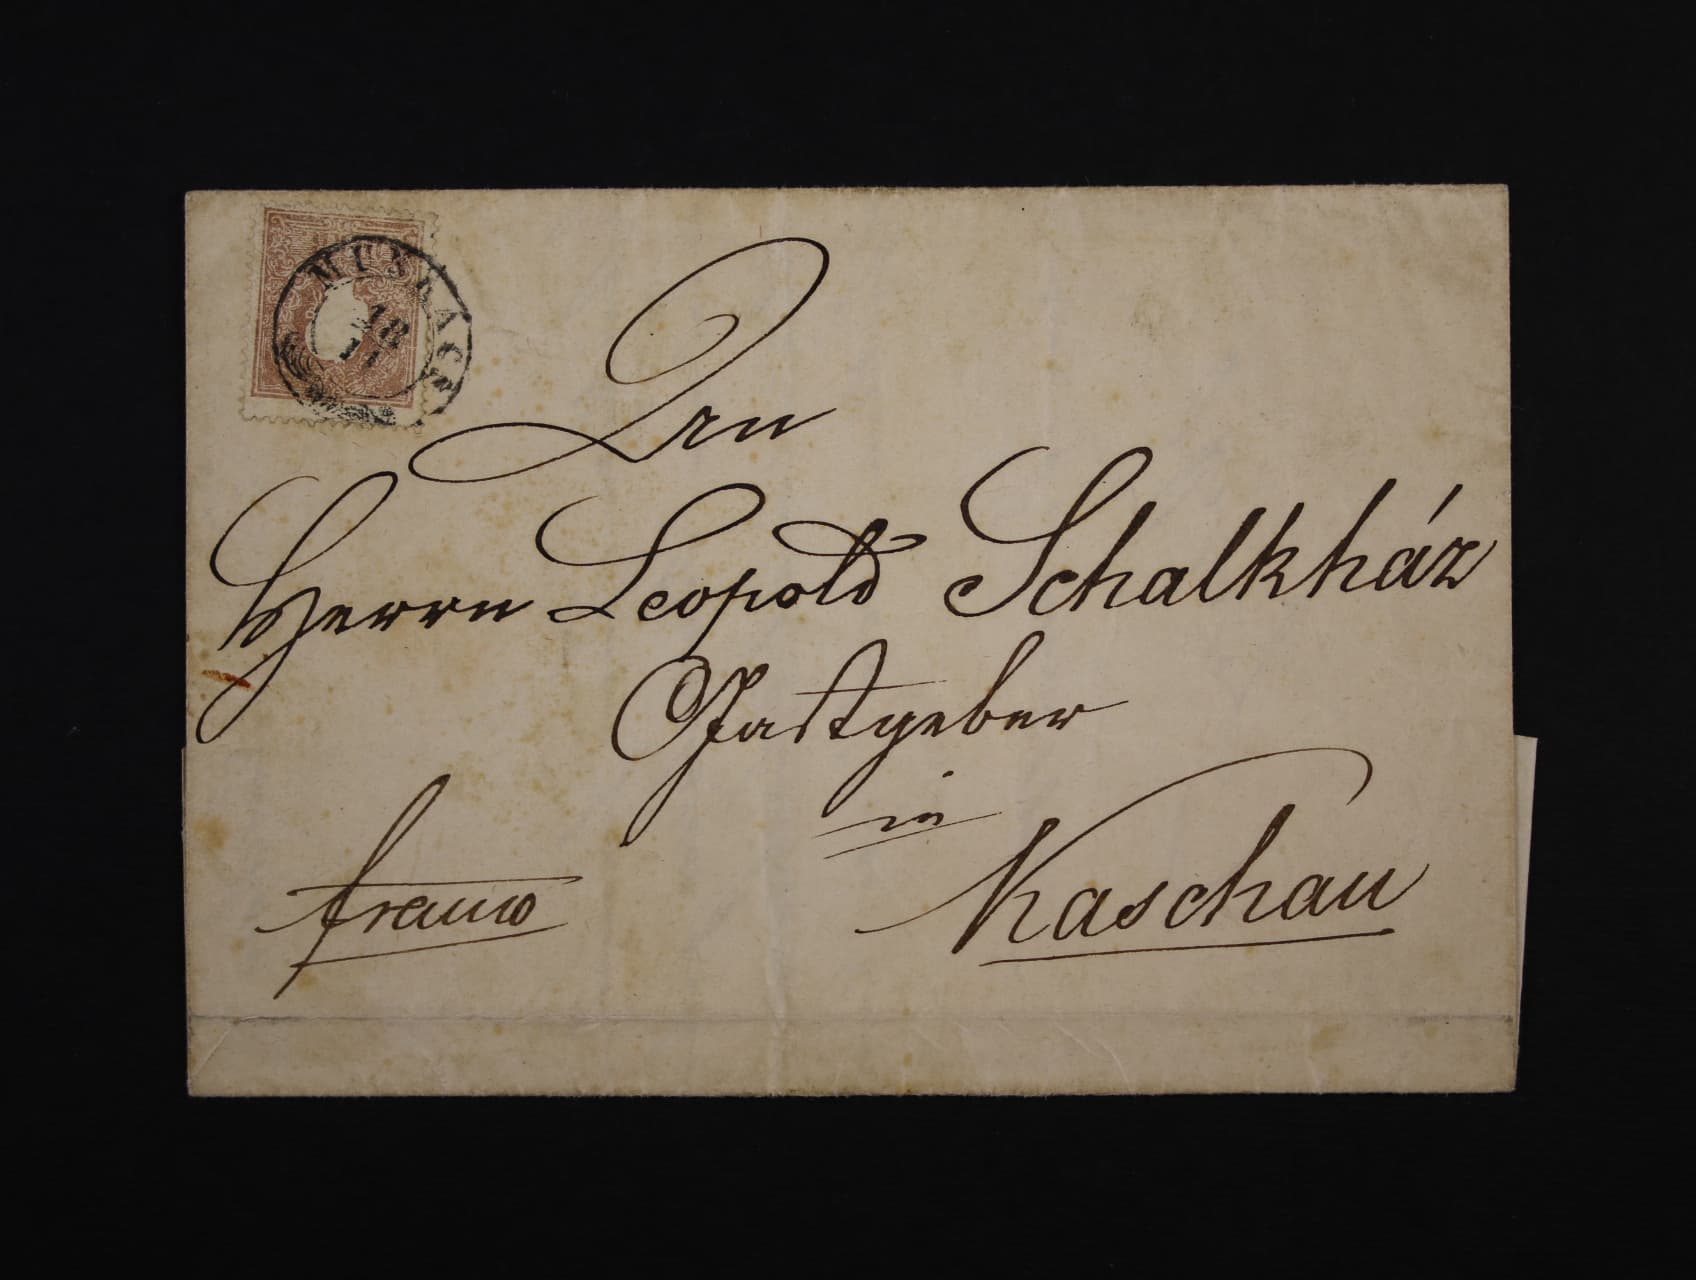 MUNKACS
18
An
Herrn Leopold Schalkház
Gastgeber
in
Kaschau
franco